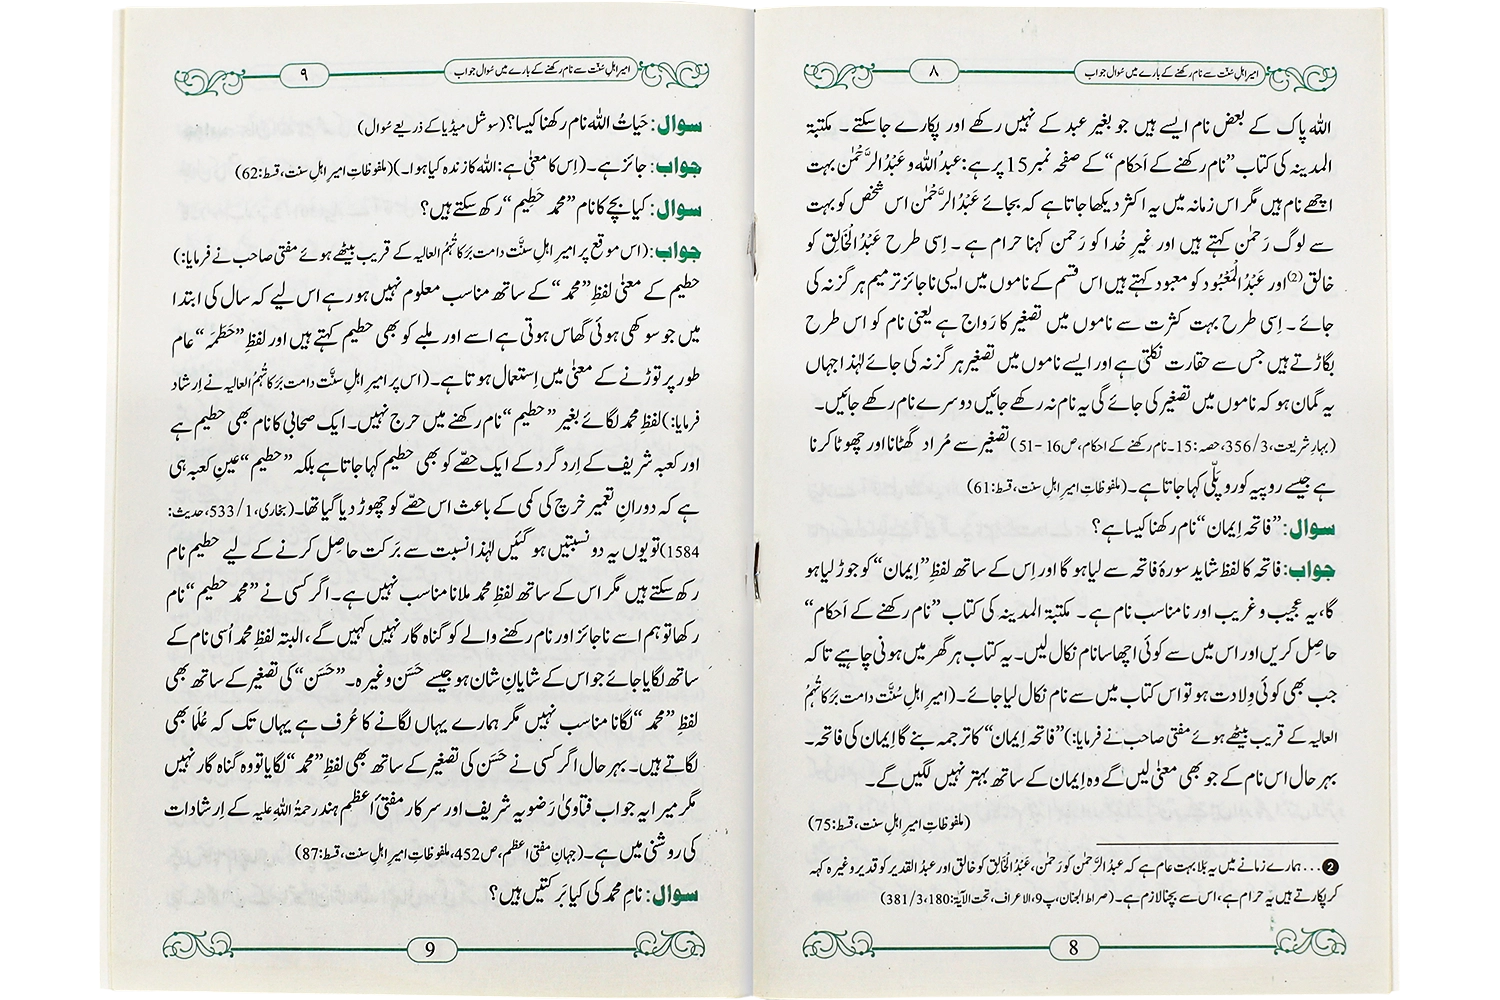 امیرِ اہلِ سنّت سے نام رکھنے کے بارے میں سُوال جواب
۸
اللہ پاک کے بعض نام ایسے ہیں جو بغیر عبد کے نہیں رکھے اور پکارے جاسکتے ۔ مکتبۃ
المدینہ کی کتاب ”نام رکھنے کے اَحکام“ کے صفحہ نمبر 15 پر ہے: عبدُ اللہ و عَبْدُ الرَّحْمٰن بہت
اچھے نام ہیں مگر اس زمانہ میں یہ اکثر دیکھا جاتا ہے کہ بجائے عَبْدُ الرَّحْمٰن اس شخص کو بہت
سے لوگ رَحمٰن کہتے ہیں اور غیرِ خُدا کو رَحمن کہنا حرام ہے ۔ اِسی طرح عَبْدُ الْخَالِق کو
خالق(2) اور عَبْدُ الْمَعْبُود کو معبود کہتے ہیں اس قسم کے ناموں میں ایسی ناجائز ترمیم ہرگز نہ کی
جائے ۔ اِسی طرح بہت کثرت سے ناموں میں تصغیر کا رَواج ہے یعنی نام کو اس طرح
بگاڑتے ہیں جس سے حقارت نکلتی ہے اور ایسے ناموں میں تصغیر ہرگز نہ کی جائے لہٰذا جہاں
یہ گمان ہو کہ ناموں میں تصغیر کی جائے گی یہ نام نہ رکھے جائیں دوسرے نام رکھے جائیں۔
(بہارِ شریعت، 3/356، حصہ:15۔ نام رکھنے کے احکام، ص16-51) تصغیر سے مُراد گھٹانا اور چھوٹا کرنا
ہے جیسے روپیہ کو روپلّی کہا جاتا ہے۔ (ملفوظاتِ امیرِ اہلِ سنت، قسط:61)
سوال: ”فاتحہ اِیمان“ نام رکھنا کیسا ہے؟
جواب: فاتحہ کا لفظ شاید سورۂ فاتحہ سے لیا ہو گا اور اِس کے ساتھ لفظِ ”اِیمان“ کو جوڑ لیا ہو
گا، یہ عجیب و غریب اور نامناسب نام ہے ۔ مکتبۃ المدینہ کی کتاب ”نام رکھنے کے اَحکام“
حاصِل کریں اور اس میں سے کوئی اچھا سا نام نکال لیں۔ یہ کتاب ہر گھر میں ہونی چاہیے تاکہ
جب بھی کوئی وِلادت ہو تو اس کتاب میں سے نام نکال لیا جائے۔ (امیرِ اہلِ سُنَّت دامت بَرَکاتُہُمُ
العالیہ کے قریب بیٹھے ہوئے مفتی صاحب نے فرمایا:) ”فاتحہ اِیمان“ کا ترجمہ بنے گا اِیمان کی فاتحہ۔
بہرحال اس نام کے جو بھی معنیٰ لیں گے وہ اِیمان کے ساتھ بہتر نہیں لگیں گے۔
(ملفوظاتِ امیرِ اہلِ سنت، قسط:75)
2... ہمارے زمانے میں یہ بَلا بہت عام ہے کہ عبدُ الرَّحمٰن کو رَحمٰن، عَبْدُ الْخَالِق کو خالق اور عبدُ القدیر کو قدیر وغیرہ کہہ
کر پکارتے ہیں یہ حرام ہے، اس سے بچنا لازم ہے۔ (صراط الجنان، پ9، الاعراف، تحت الآیۃ:180، 3/381)
8
امیرِ اہلِ سنّت سے نام رکھنے کے بارے میں سُوال جواب
۹
سوال: حَیاتُ اللہ نام رکھنا کیسا؟ (سوشل میڈیا کے ذریعے سُوال)
جواب: جائز ہے۔ (اِس کا معنیٰ ہے: اللہ کا زندہ کیا ہوا۔) (ملفوظاتِ امیرِ اہلِ سنت، قسط:62)
سوال: کیا بچے کا نام ”محمد حَطِیم“ رکھ سکتے ہیں؟
جواب: (اس موقع پر امیرِ اہلِ سنَّت دامت بَرَکاتُہُمُ العالیہ کے قریب بیٹھے ہوئے مفتی صاحب نے فرمایا:)
حطیم کے معنیٰ لفظِ ”محمد“ کے ساتھ مناسب معلوم نہیں ہو رہے اس لیے کہ سال کی ابتدا
میں جو سوکھی ہوئی گھاس ہوتی ہے اسے اور ملبے کو بھی حطیم کہتے ہیں اور لفظِ ”حَطْمَہ“ عام
طور پر توڑنے کے معنیٰ میں اِستعمال ہوتا ہے۔ (اس پر امیرِ اہلِ سنَّت دامت بَرَکاتُہُمُ العالیہ نے اِرشاد
فرمایا:) لفظ محمد لگائے بغیر ”حطیم“ نام رکھنے میں حرج نہیں۔ ایک صحابی کا نام بھی حطیم ہے
اور کعبہ شریف کے اِرد گرد کے ایک حصّے کو بھی حطیم کہا جاتا ہے بلکہ ”حطیم“ عینِ کعبہ ہی
ہے کہ دورانِ تعمیر خرچ کی کمی کے باعث اس حصّے کو چھوڑ دیا گیا تھا۔ (بخاری، 1/533، حدیث:
1584) تو یوں یہ دو نسبتیں ہو گئیں لہٰذا نسبت سے بَرَکت حاصِل کرنے کے لیے حطیم نام
رکھ سکتے ہیں مگر اس کے ساتھ لفظِ محمد ملانا مناسب نہیں ہے۔ اگر کسی نے ”محمد حطیم“ نام
رکھا تو ہم اسے ناجائز اور نام رکھنے والے کو گناہ گار نہیں کہیں گے، البتہ لفظِ محمد اُسی نام کے
ساتھ لگایا جائے جو اس کے شایانِ شان ہو جیسے حَسَن وغیرہ۔ ”حَسَن“ کی تصغیر کے ساتھ بھی
لفظِ ”محمد“ لگانا مناسب نہیں مگر ہمارے یہاں لگانے کا عُرف ہے یہاں تک کہ عُلَما بھی
لگاتے ہیں۔ بہرحال اگر کسی نے حَسَن کی تصغیر کے ساتھ بھی لفظِ ”محمد“ لگایا تو وہ گناہ گار نہیں
مگر میرا یہ جواب فتاویٰ رَضویہ شریف اور سرکار مفتیٔ اَعظم ہند رحمۃُ اللہِ علیہ کے اِرشادات
کی روشنی میں ہے۔ (جہانِ مفتی اعظم، ص452، ملفوظاتِ امیرِ اہلِ سنت، قسط:87)
سوال: نامِ محمد کی کیا بَرَکتیں ہیں؟
9